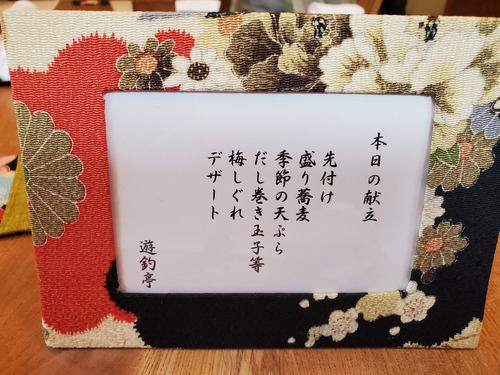 本日の献立
先付け
盛り蕎麦
季節の天ぷら
だし巻き玉子等
梅しぐれ
デザート
遊釣亭